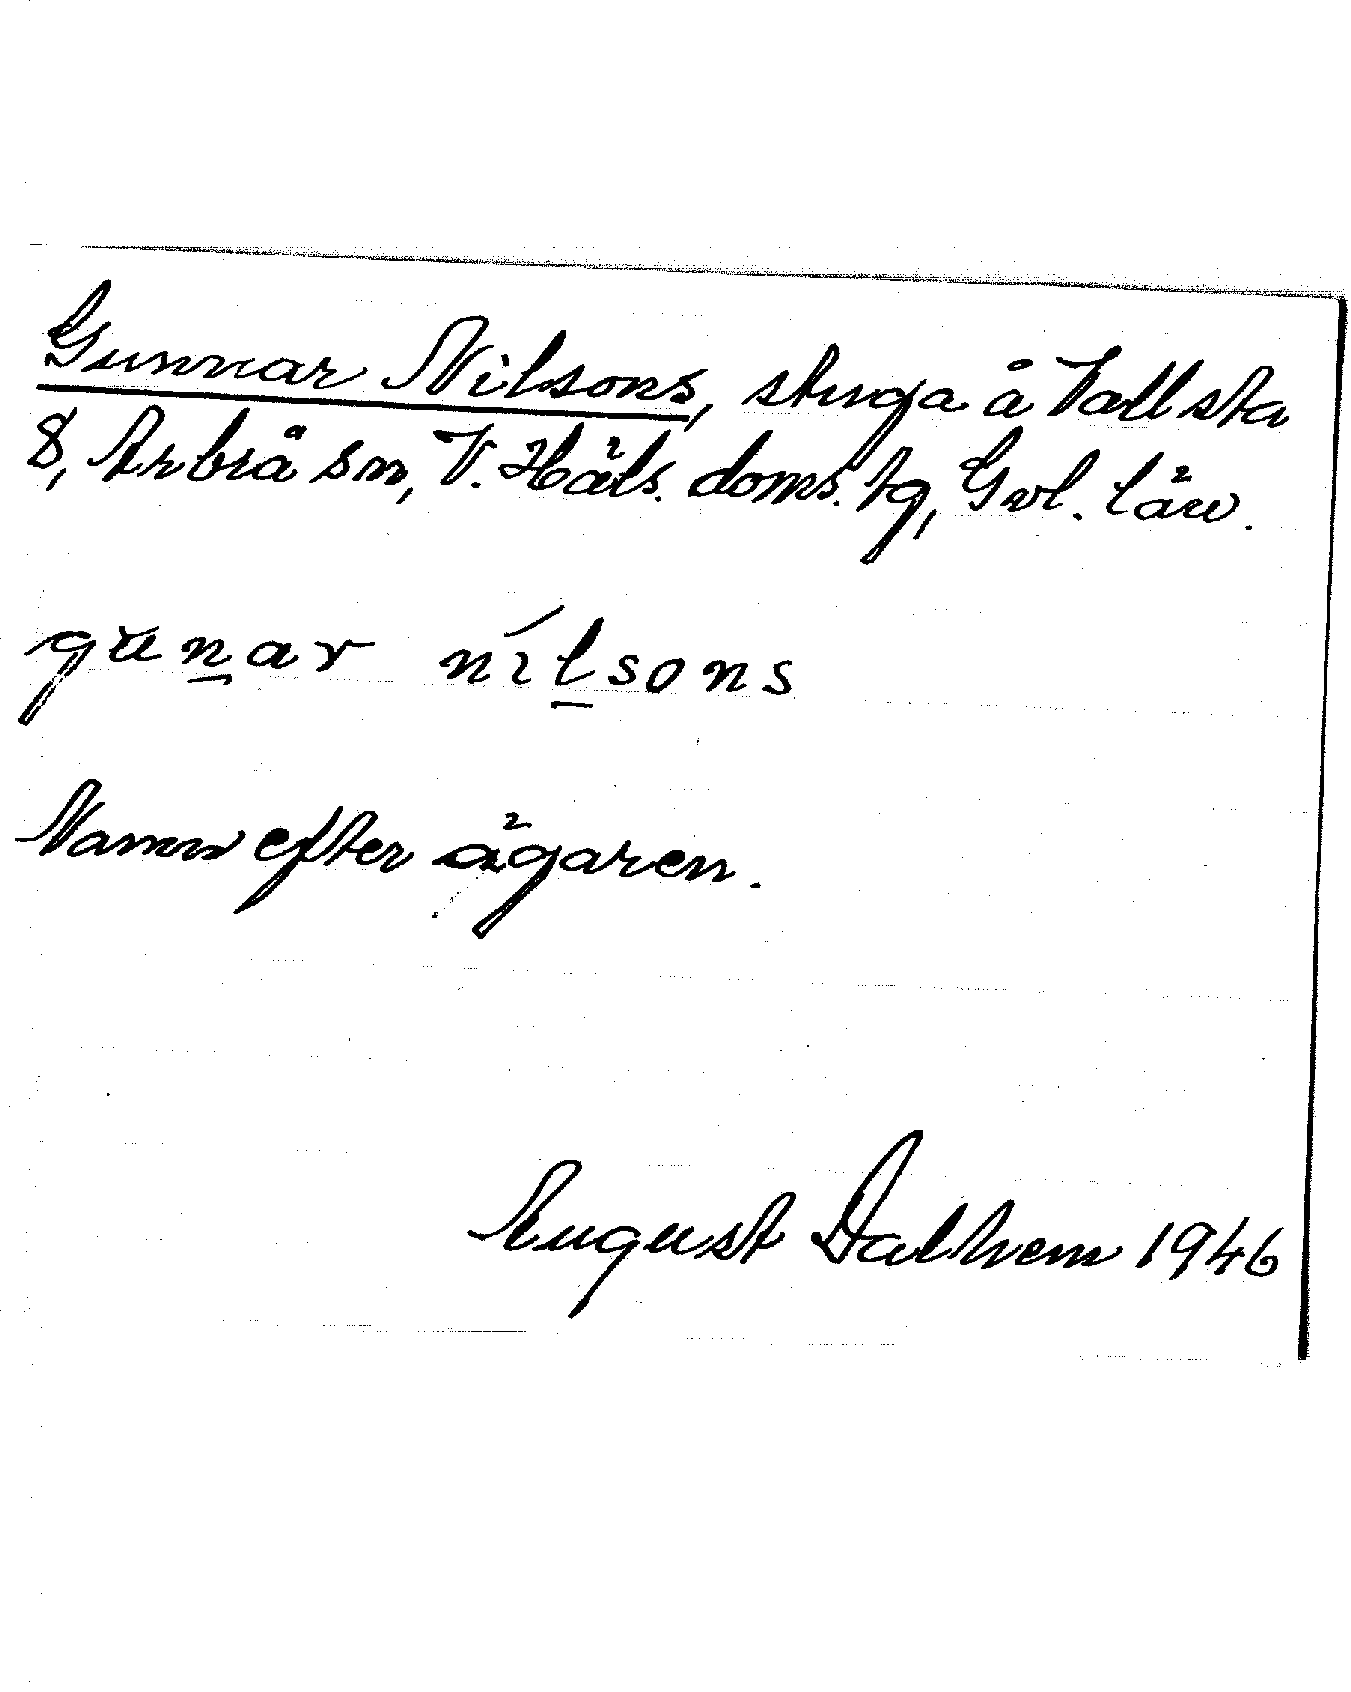 Gunnar Nilsons, stuga å Vallsta
8, Arbrå sn, V. Häls. doms. tg, Gvl. län.
gunar nilsons
Namn efter ägaren.
August Dalhem 1946